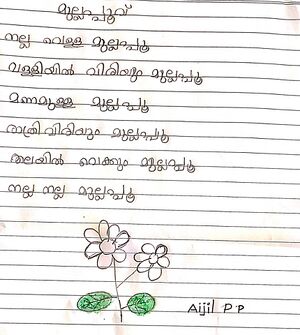 മുല്ലപ്പൂവ്
നല്ല വെള്ള മുല്ലപ്പൂ
വള്ളിയിൽ വിരിയും മുല്ലപ്പൂ
മണമുള്ള മുല്ലപ്പൂ
രാത്രിവിരിയും മുല്ലപ്പൂ
തലയിൽ വെക്കും മുല്ലപ്പൂ
നല്ല നല്ല മുല്ലപ്പൂ
Aijil P P